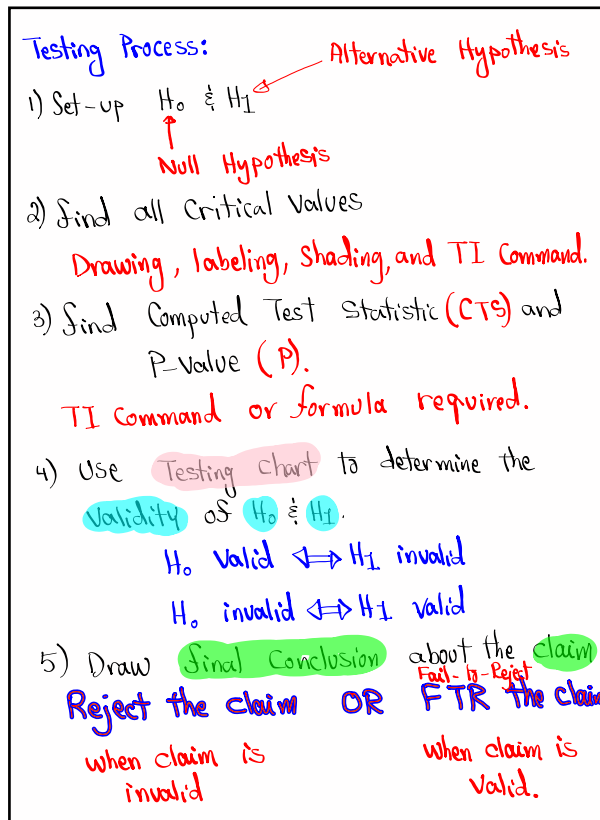 Testing Process:
Alternative Hypothesis
1) Set-up H₀ & H1
Null Hypothesis
2) find all Critical Values
Drawing, labeling, Shading, and TI Command.
3) find Computed Test Statistic (CTS) and
P-Value (P).
TI Command or formula required.
4) Use Testing Chart to determine the
Validity of H₀ & H1.
H₀ Valid ⟺ H1 invalid
H₀ invalid ⟺ H1 valid
5) Draw final Conclusion about the claim
Fail-to-Reject
Reject the claim OR FTR the claim
when claim is invalid
when claim is Valid.